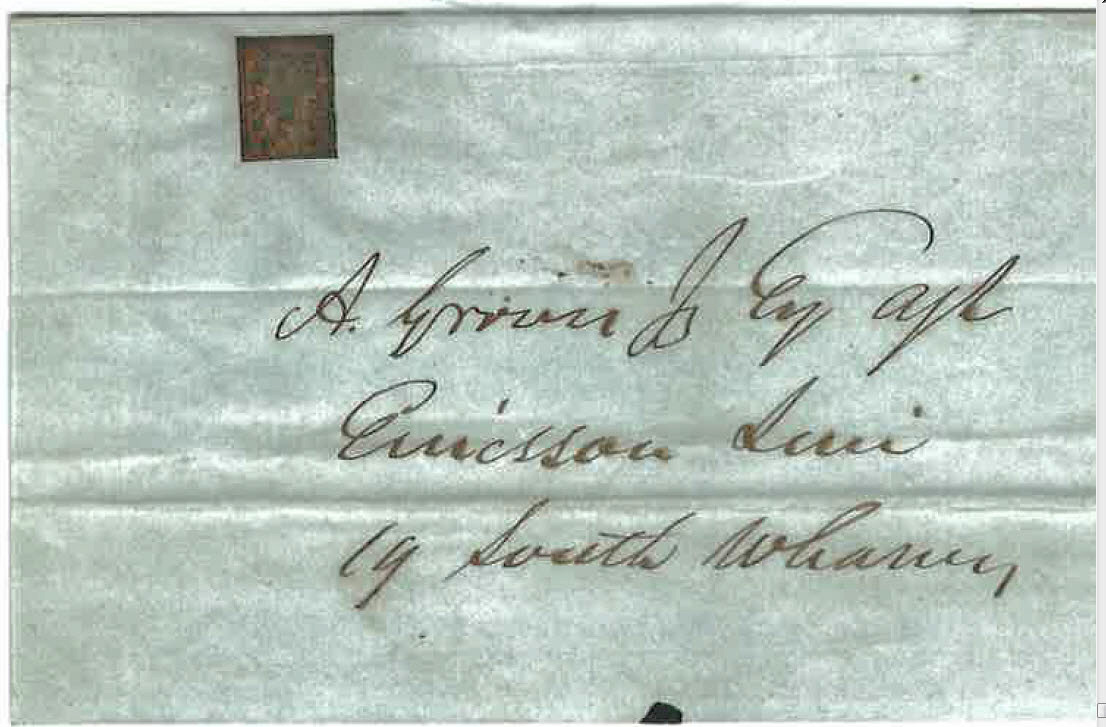 A. Groves Jr Esq Agt
Ericsson Line
19 South Wharves